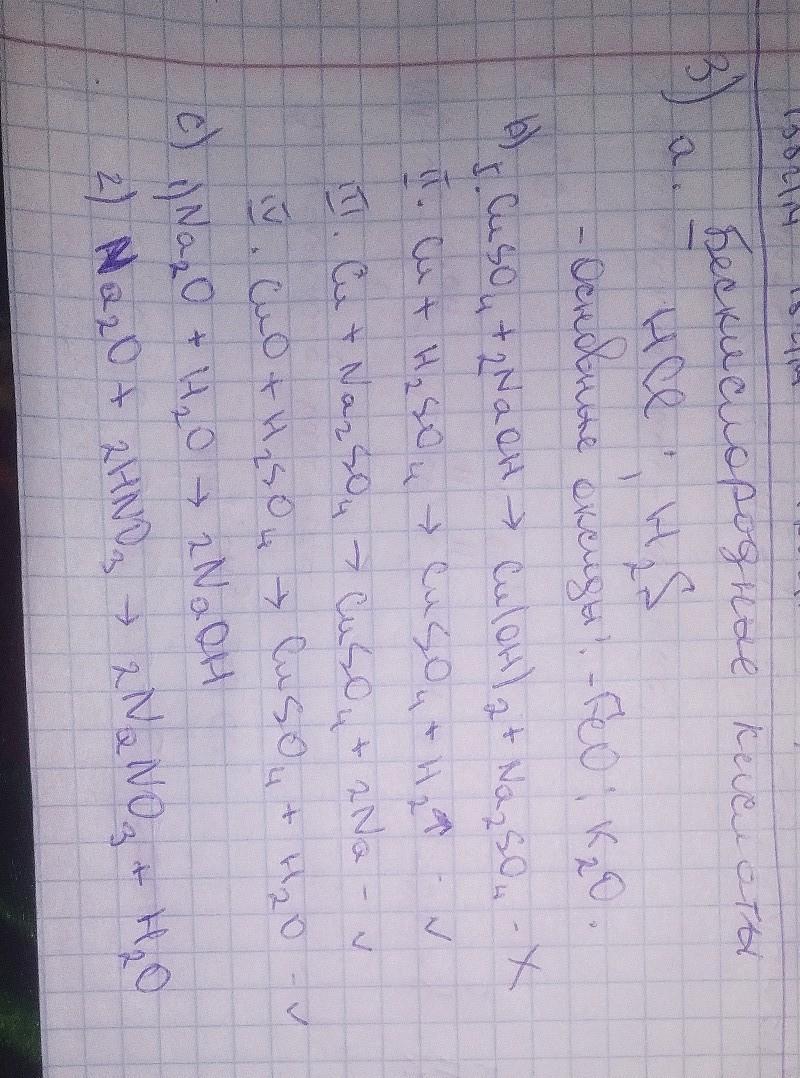 3) а. Бескислородные кислоты
HCl; H₂S
- Основные оксиды: - FeO; K₂O.
b) I. CuSO₄ + 2NaOH → Cu(OH)₂ + Na₂SO₄ - X
II. Cu + H₂SO₄ → CuSO₄ + H₂↑ - ✓
III. Cu + Na₂SO₄ → CuSO₄ + 2Na - ✓
IV. CuO + H₂SO₄ → CuSO₄ + H₂O - ✓
c) 1) Na₂O + H₂O → 2NaOH
2) Na₂O + 2HNO₃ → 2NaNO₃ + H₂O